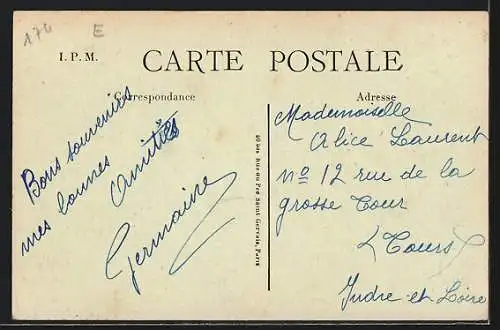 174 E
I. P. M.
CARTE POSTALE
Correspondance
Adresse
Bons souvenirs
mes bonnes Amitiés
Germaine
Mademoiselle
Alice Laurent
nº 12 rue de la
grosse Tour
Tours
Indre et Loire
Pré Saint Gervais, Paris